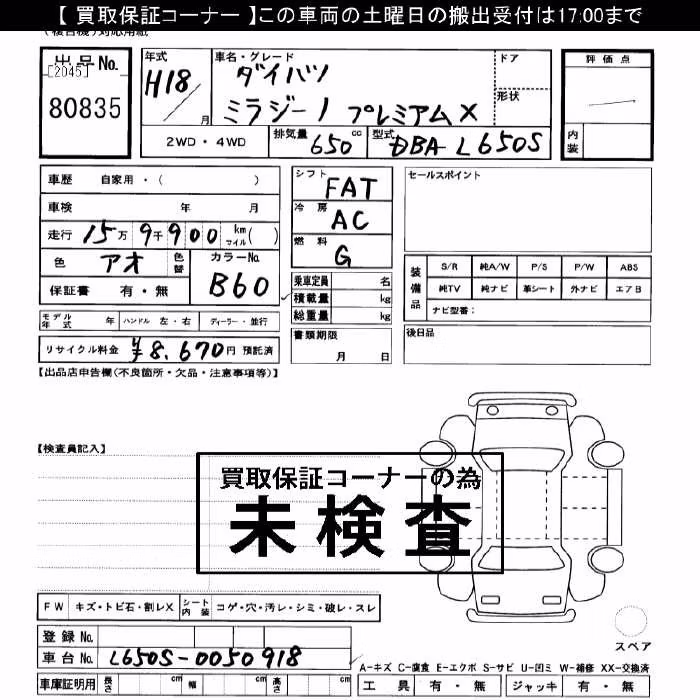 【 買取保証コーナー 】この車両の土曜日の搬出受付は17:00まで
出品No.
[2045]
80835
年式
H18
月
車名・グレード
ダイハツ
ミラジーノ プレミアムX
ドア
形状
評価点
内装
2WD・4WD
排気量 650 cc
型式 DBA-L650S
車歴 自家用・( )
車検 年 月
走行 15万 9千 900 km マイル( )
色 アオ 色替
カラーNo. B60
保証書 有・無
シフト FAT
冷房 AC
燃料 G
乗車定員 名
積載量 kg
総重量 kg
セールスポイント
装備品
S/R 純A/W P/S P/W ABS
純TV 純ナビ 革シート 外ナビ エアB
ナビ型番:
モデル年式 年 ハンドル 左・右 ディーラー・並行
リサイクル料金 ¥8,670円 預託済
書類期限
月 日
後日品
【出品店申告欄(不良箇所・欠品・注意事項等)】
【検査員記入】
買取保証コーナーの為
未検査
FW キズ・トビ石・割レX シート内装 コゲ・穴・汚レ・シミ・破レ・スレ
スペア
登録No.
車台No. L650S-0050918
A-キズ C-腐食 E-エクボ S-サビ U-凹ミ W-補修 XX-交換済
車庫証明用 長さ cm 幅 cm 高さ cm
工具 有・無 ジャッキ 有・無